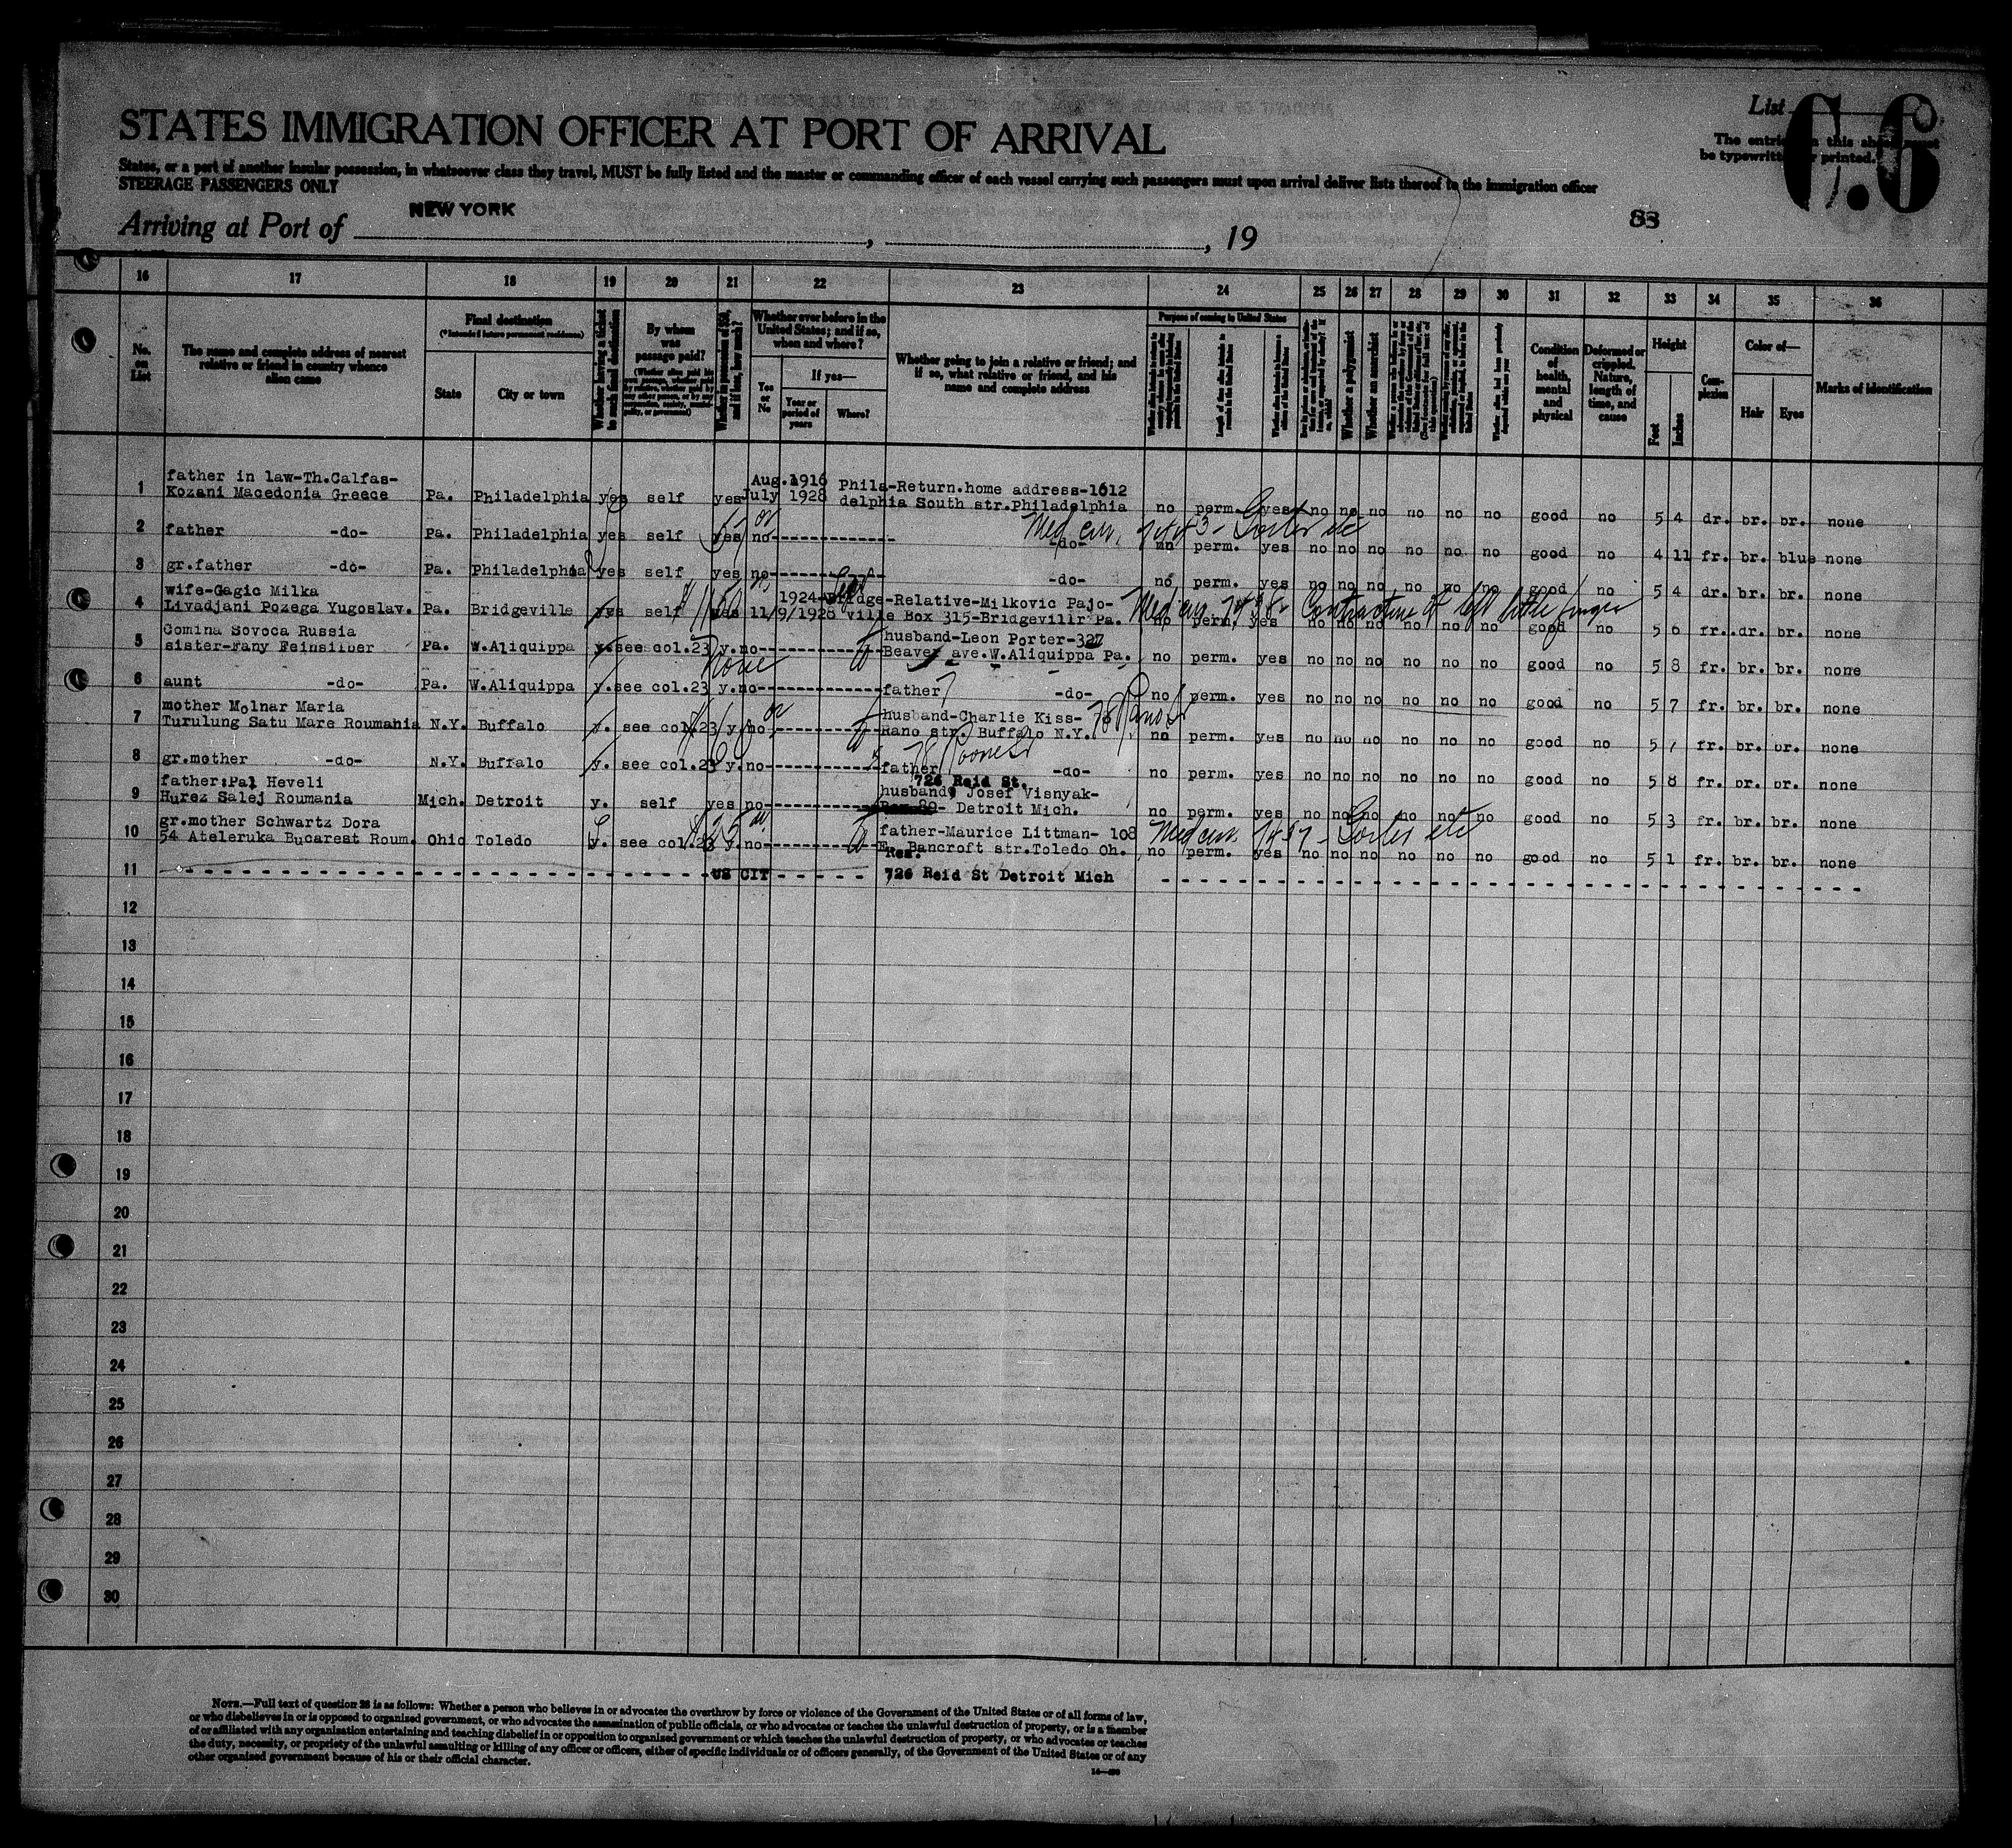 List
C.6
The entries on this sheet must
be typewritten or printed.
STATES IMMIGRATION OFFICER AT PORT OF ARRIVAL
States, or a port of another insular possession, in whatsoever class they travel, MUST be fully listed and the master or commanding officer of each vessel carrying such passengers must upon arrival deliver lists thereof to the immigration officer
STEERAGE PASSENGERS ONLY
NEW YORK
88
Arriving at Port of , , 19
16 17 18 19 20 21 22 23 24 25 26 27 28 29 30 31 32 33 34 35 36
No. on List
The name and complete address of nearest relative or friend in country whence alien came
Final destination
(*Intended future permanent residence)
State
City or town
Whether having a ticket to such final destination
By whom was passage paid?
Whether in possession of $50, and if less, how much?
Whether ever before in the United States; and if so, when and where?
Yes or No
If yes—
Year or period of years
Where?
Whether going to join a relative or friend; and if so, what relative or friend, and his name and complete address
Purpose of coming to United States
Whether a polygamist
Whether an anarchist
Condition of health, mental and physical
Deformed or crippled. Nature, length of time, and cause
Height
Feet
Inches
Complexion
Color of—
Hair
Eyes
Marks of identification
father in law-Th.Calfas- Aug.1916 Phila-Return.home address-1612
1 Kozani Macedonia Greece Pa. Philadelphia yes self yes July 1928 delphia South str.Philadelphia no perm. yes no no no no no no good no 5 4 dr. br. br. none
Med cer. Goiter etc
2 father -do- Pa. Philadelphia yes self yes no -do- no perm. yes no no no no no no good no 4 11 fr. br. blue none
3 gr.father -do- Pa. Philadelphia yes self yes no -do- no perm. yes no no no no no no good no 5 4 dr. br. br. none
wife-Gagic Milka 1924- Bridge-Relative-Milkovic Pajo- Med cer. Contracture of left little finger
4 Livadjani Pozega Yugoslav. Pa. Bridgeville yes self yes 11/9/1928 ville Box 315-Bridgevillr Pa. no perm. yes no no no no no no good no 5 6 fr. dr. br. none
Gomina Sovoca Russia husband-Leon Porter-327
5 sister-Fany Feinsilber Pa. W.Aliquippa y. see col.23 y. no Beaver ave.W.Aliquippa Pa. no perm. yes no no no no no no good no 5 8 fr. br. br. none
None
6 aunt -do- Pa. W.Aliquippa y. see col.23 y. no father -do- no perm. yes no no no no no no good no 5 7 fr. br. br. none
mother Molnar Maria husband-Charlie Kiss- 78
7 Turulung Satu Mare Roumania N.Y. Buffalo y. see col.23 y. no Rano str. Buffalo N.Y. no perm. yes no no no no no no good no 5 7 fr. br. br. none
8 gr.mother -do- N.Y. Buffalo y. see col.23 y. no father -do- no perm. yes no no no no no no good no 5 8 fr. br. br. none
726 Reid St.
father:Pal Heveli husband Josef Visnyak-
9 Hurez Salej Roumania Mich. Detroit y. self yes no Detroit Mich. no perm. yes no no no no no no good no 5 3 fr. br. br. none
gr.mother Schwartz Dora father-Maurice Littman- 108 Med cer. Goiter etc
10 54 Ateleruka Bucarest Roum. Ohio Toledo y. see col.23 y. no E. Bancroft str.Toledo Oh. no perm. yes no no no no no no good no 5 1 fr. br. br. none
Res.
11 US CIT 726 Reid St Detroit Mich
12
13
14
15
16
17
18
19
20
21
22
23
24
25
26
27
28
29
30
NOTE.—Full text of question 28 is as follows: Whether a person who believes in or advocates the overthrow by force or violence of the Government of the United States or of all forms of law,
or who disbelieves in or is opposed to organized government, or who advocates the assassination of public officials, or who advocates or teaches the unlawful destruction of property, or is a member
of or affiliated with any organization entertaining and teaching disbelief in or opposition to organized government or which teaches the unlawful destruction of property, or who advocates or teaches
the duty, necessity, or propriety of the unlawful assaulting or killing of any officer or officers, either of specific individuals or of officers generally, of the Government of the United States or of any
other organized government because of his or their official character.